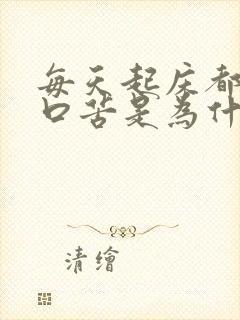 每天起床都
口苦是为什
清繪